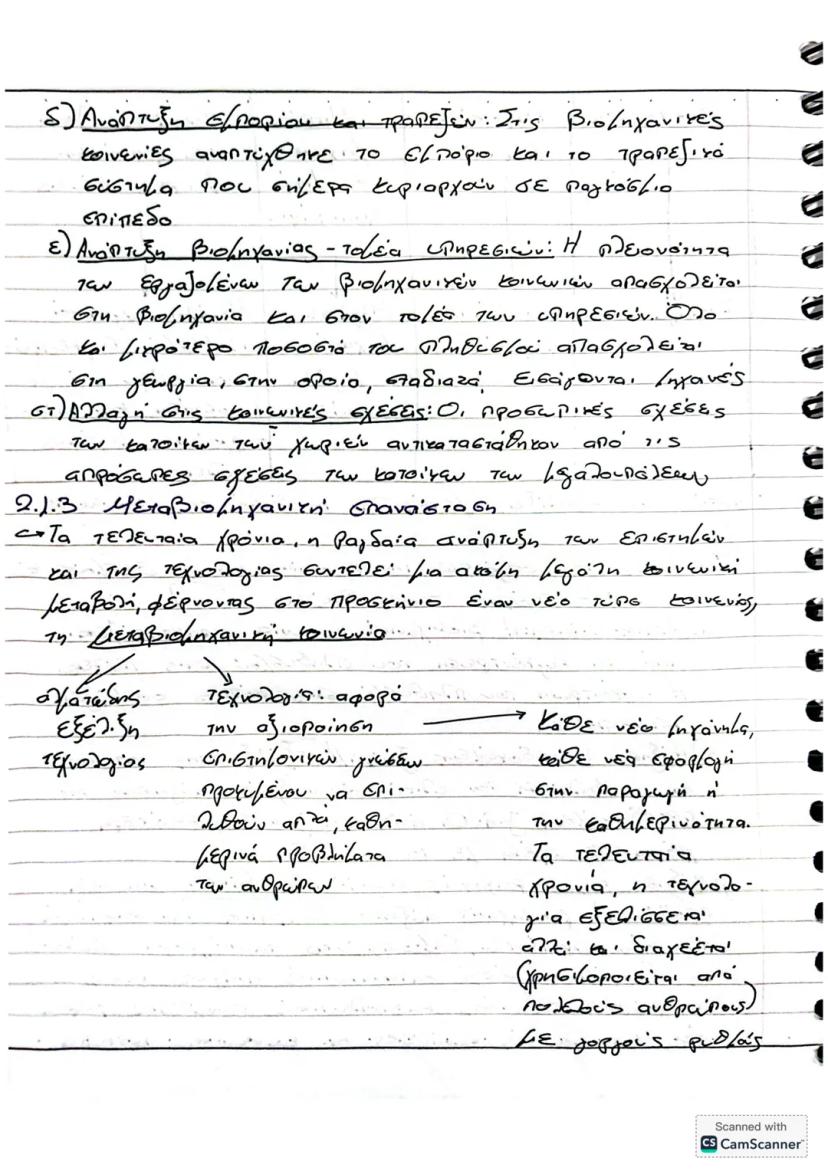 δ) Ανάπτυξη εμπορίου και τραπεζών: Στις βιομηχανικές
κοινωνίες αναπτύχθηκε το εμπόριο και το τραπεζικό
σύστημα που σήμερα κυριαρχούν σε παγκόσμιο
επίπεδο
ε) Ανάπτυξη βιομηχανίας - τομέα υπηρεσιών: Η πλειονότητα
των εργαζομένων των βιομηχανικών κοινωνιών απασχολείται
στη βιομηχανία και στον τομέα των υπηρεσιών. Όλο
και μικρότερο ποσοστό του πληθυσμού απασχολείται
στη γεωργία, στην οποία, σταδιακά, εισάγονται μηχανές
στ) Αλλαγή στις κοινωνικές σχέσεις: Οι προσωπικές σχέσεις
των κατοίκων των χωριών αντικαταστάθηκαν από τις
απρόσωπες σχέσεις των κατοίκων των μεγαλουπόλεων
2.1.3 Μεταβιομηχανική επανάσταση
↪ Τα τελευταία χρόνια, η ραγδαία ανάπτυξη των επιστημών
και της τεχνολογίας συντελεί μια ακόμη μεγάλη κοινωνική
μεταβολή, φέρνοντας στο προσκήνιο έναν νέο τύπο κοινωνίας,
τη μεταβιομηχανική κοινωνία
αλματώδης
εξέλιξη
τεχνολογίας
τεχνολογία: αφορά
την αξιοποίηση
επιστημονικών γνώσεων
προκειμένου να επι-
λυθούν απλά, καθη-
μερινά προβλήματα
των ανθρώπων
κάθε νέο μηχάνημα,
κάθε νέα εφαρμογή
στην παραγωγή ή
την καθημερινότητα.
Τα τελευταία
χρονιά, η τεχνολο-
γία εξελίσσεται
αλλά και διαχέεται
(χρησιμοποιείται από
πολλούς ανθρώπους)
με γοργούς ρυθμούς
Scanned with
CS CamScanner